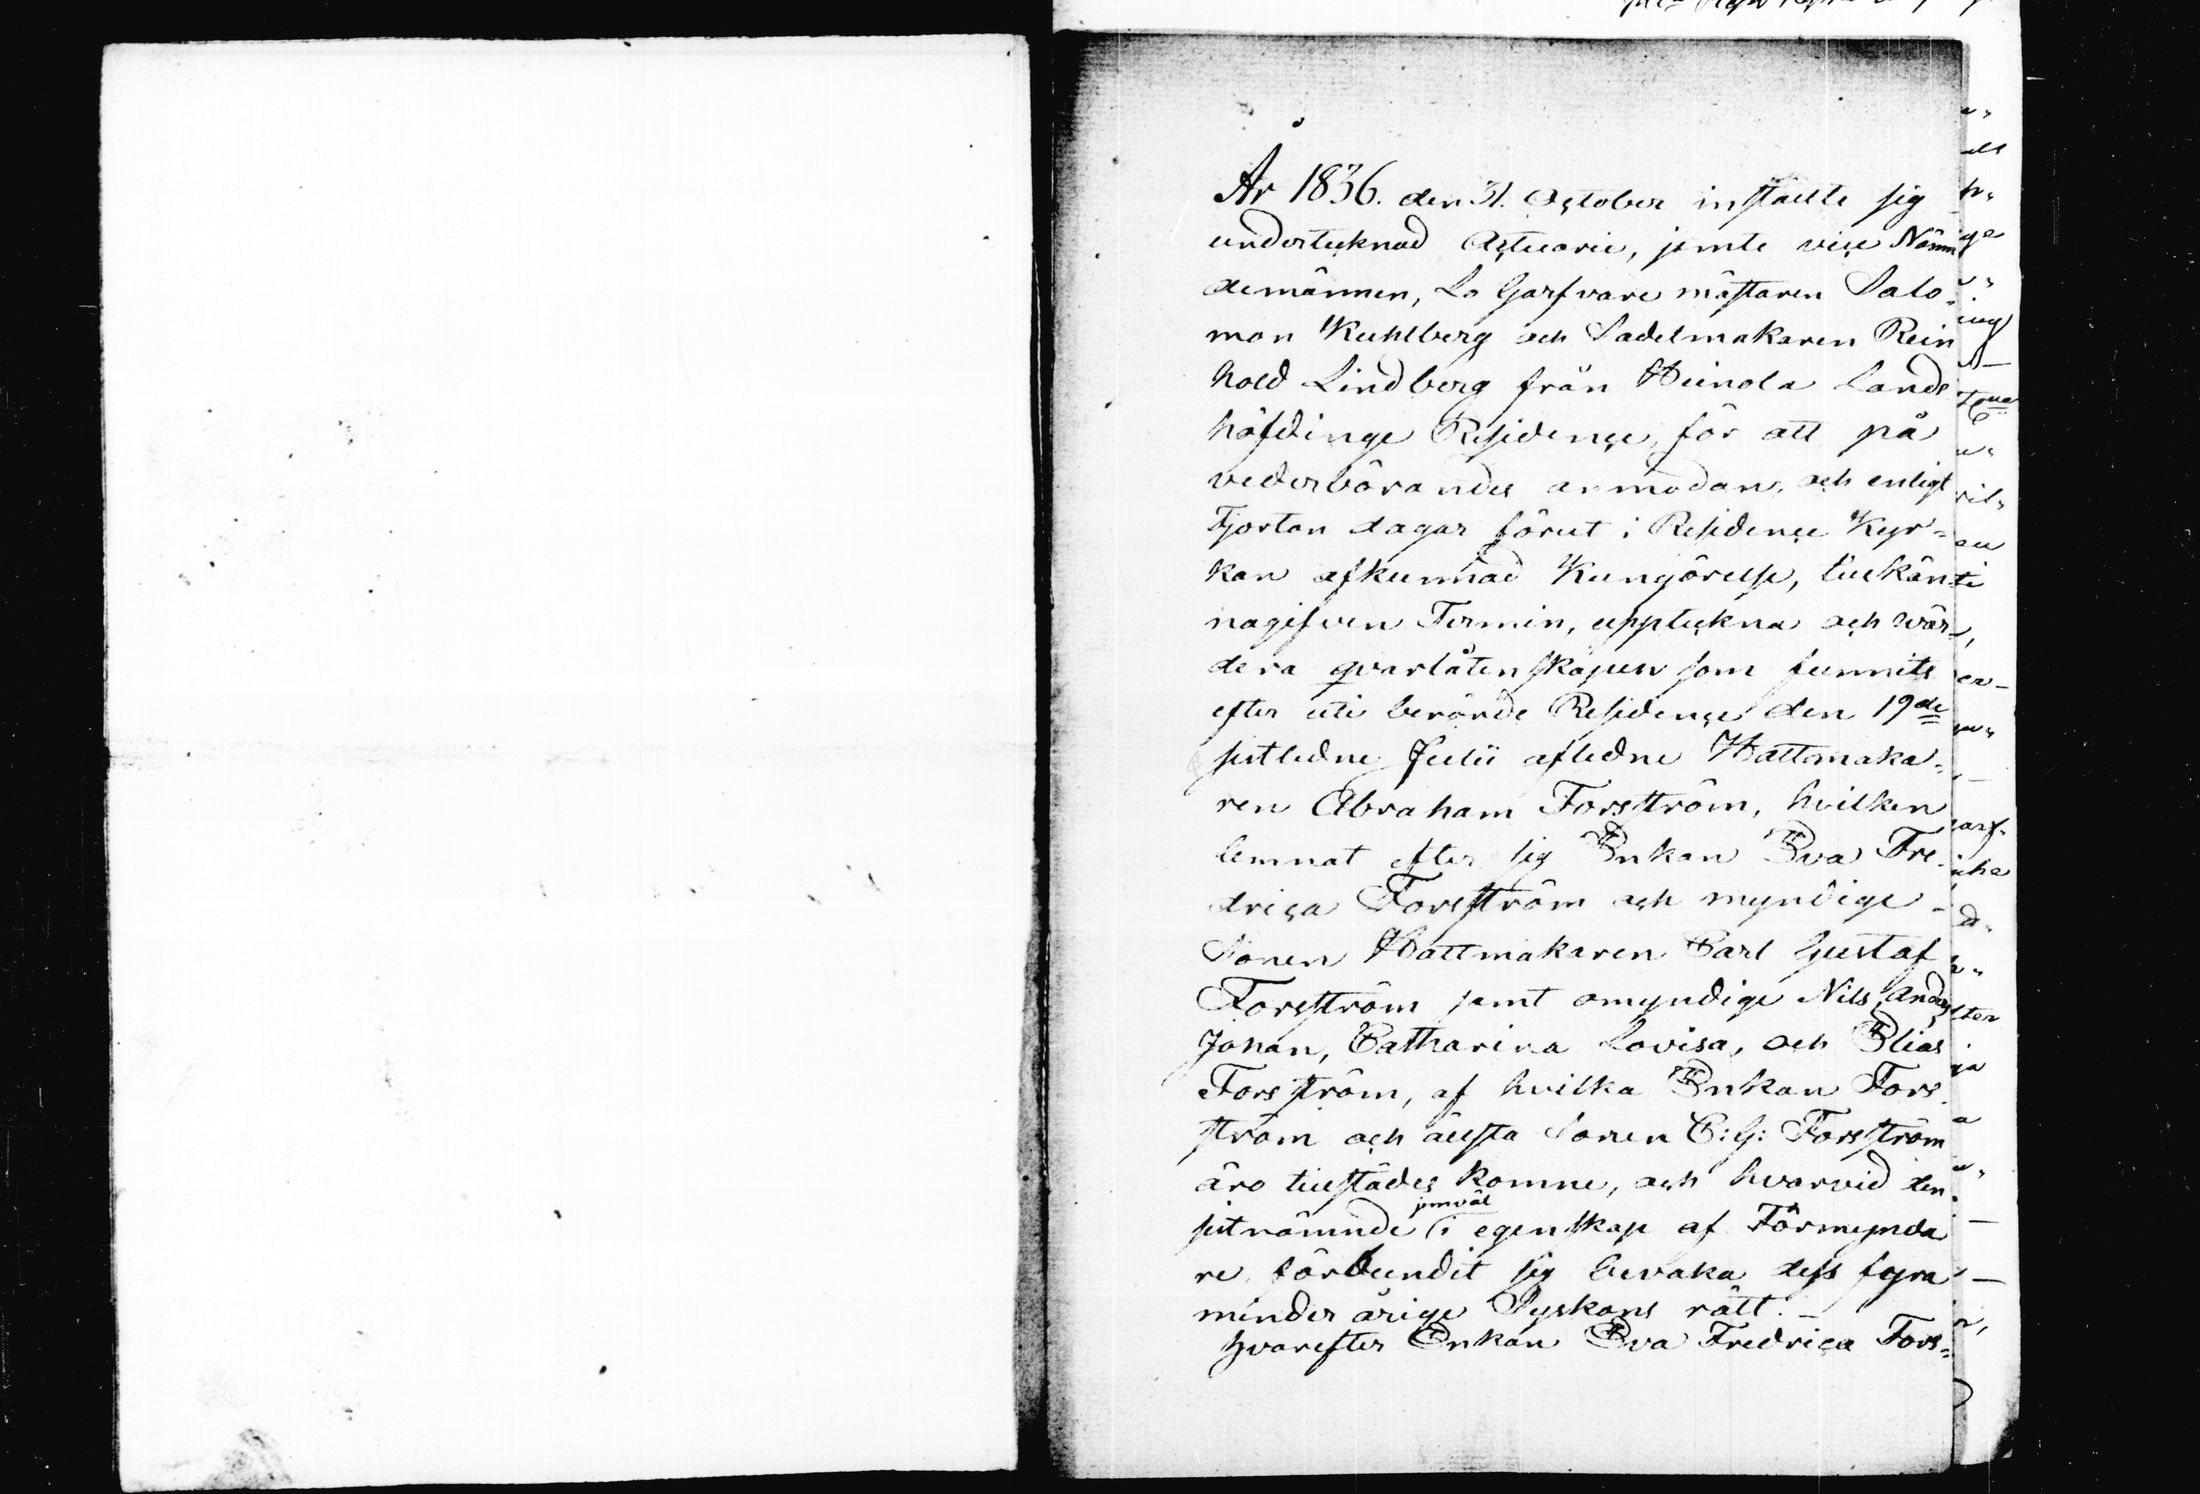 År 1836. den 31. October instälte sig
undertecknad Actuarie, jemte vice Näm
demännen, Logarfvare mästaren Salo=
mon Kuhlberg och Sadelmakaren Rein
hold Lindberg från Heinola Lands
höfdinge Residence, för att på
vederbörandes anmodan, och enligt
Fjorton dagar förut i Residence Kyr=
kan afkunnad Kungörelse, tillkän
nagifven Termin, uppteckna och wär=
dera qvarlåtenskapen som funnits
efter uti berörde Residence den 19de
sistledne Julii afledne Hattmaka=
ren Abraham Forsström, hvilken
lemnat efter sig Enkan Eva Fre
drica Forsström och myndige
Sonen Hattmakaren Carl Gustaf
Forsström samt omyndige Nils, Anders
Johan, Catharina Lovisa, och Elias
Forsström, af hvilka Enkan Fors
ström och älsta Sonen C: G: Forsström
äro tillstädes komne, och hvarvid den
jemväl
sistnämnde i egenskap af Förmynda
re förbundit sig bevaka dess fyra
minder årige Syskons rätt. –
Hvarefter Enkan Eva Fredrica Fors=